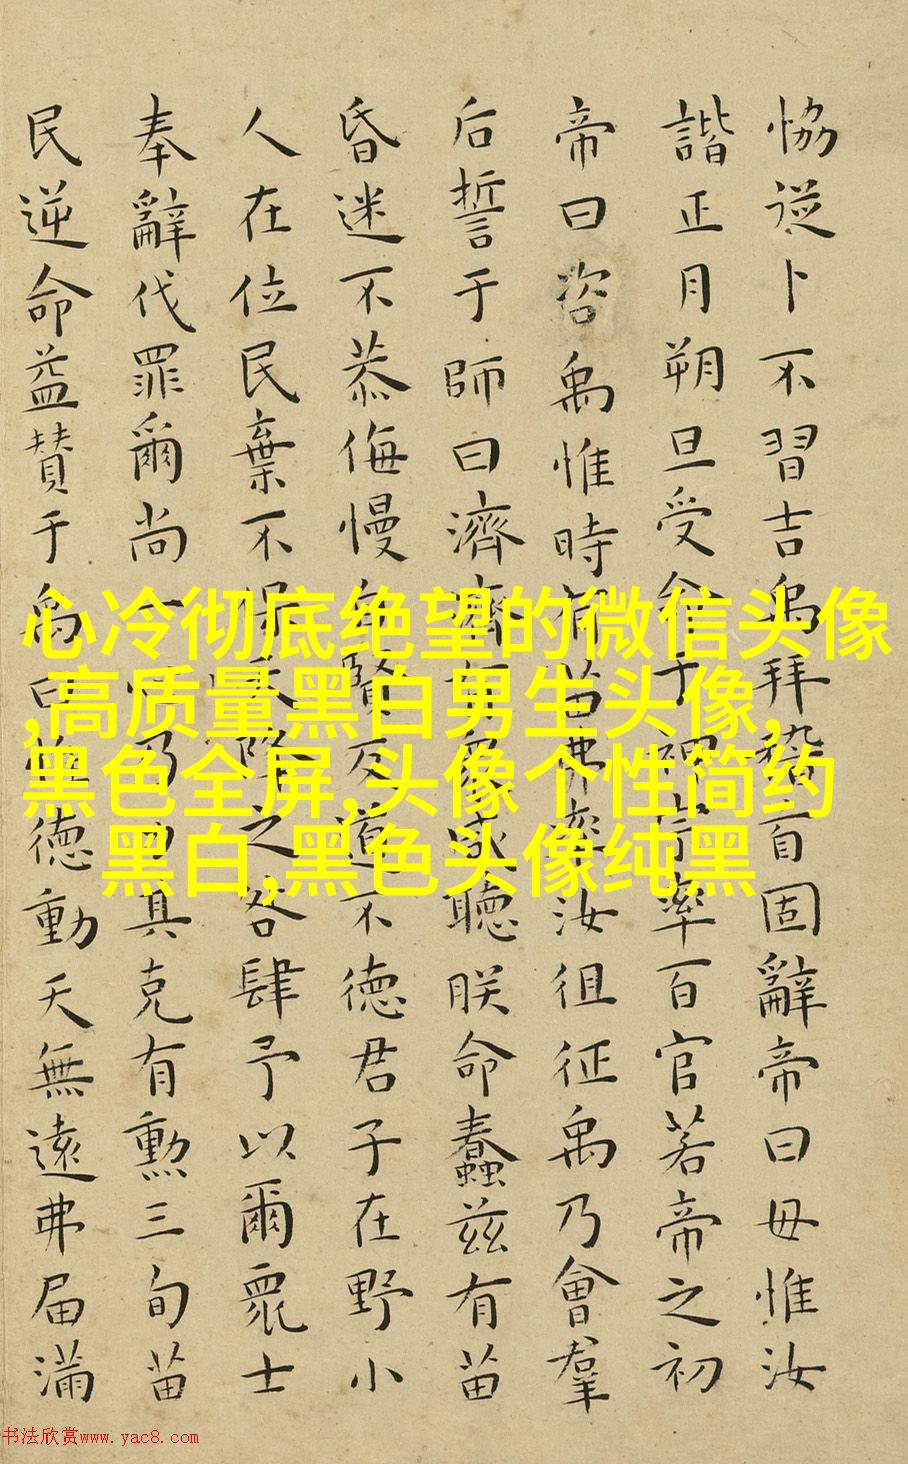 恊從卜不習吉禹拜稽首固辭帝曰毋惟汝
諧正月朔旦受命于神宗率百官若帝之初
帝曰咨禹惟時有苗弗率汝徂征禹乃會羣
后誓于師曰濟濟有衆咸聽朕命蠢茲有苗
昏迷不恭侮慢自賢反道不德君子在野小
人在位民棄不保天降之咎肆予以爾衆士
奉辭伐罪爾尚一心乃力其克有勳三旬苗
民逆命益贊于禹曰惟德動天無遠弗届滿
心冷彻底绝望的微信头像
,高质量黑白男生头像,
黑色全屏,头像个性简约
黑白,黑色头像纯黑
书法欣赏www.yac8.com